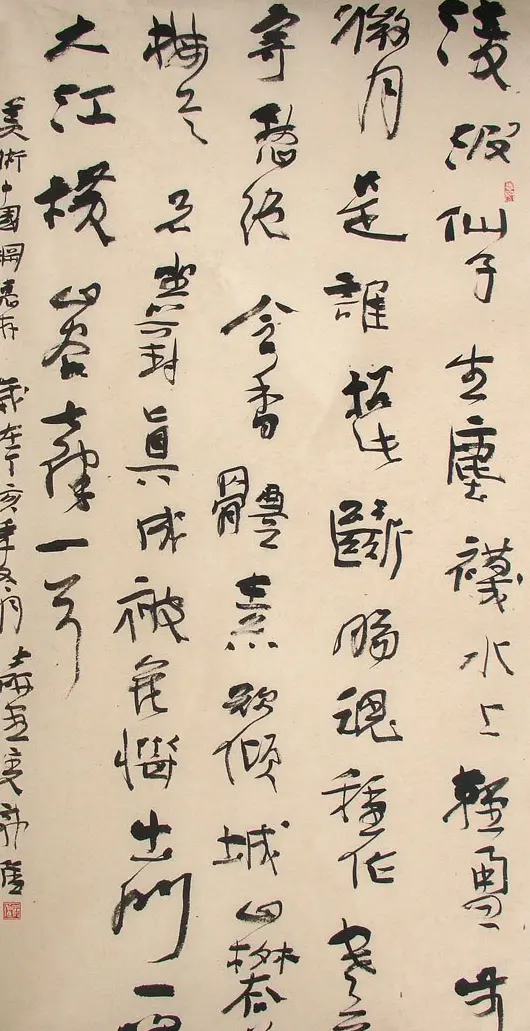 淩波仙子生塵襪水上輕盈步
微月是誰招此斷腸魂種作寒
寄愁絕含香體素欲傾城山礬
梅是兄坐對真成被花惱出門一笑
大江橫 山谷 一首
美術中國網惠存 歲在丁亥年 月